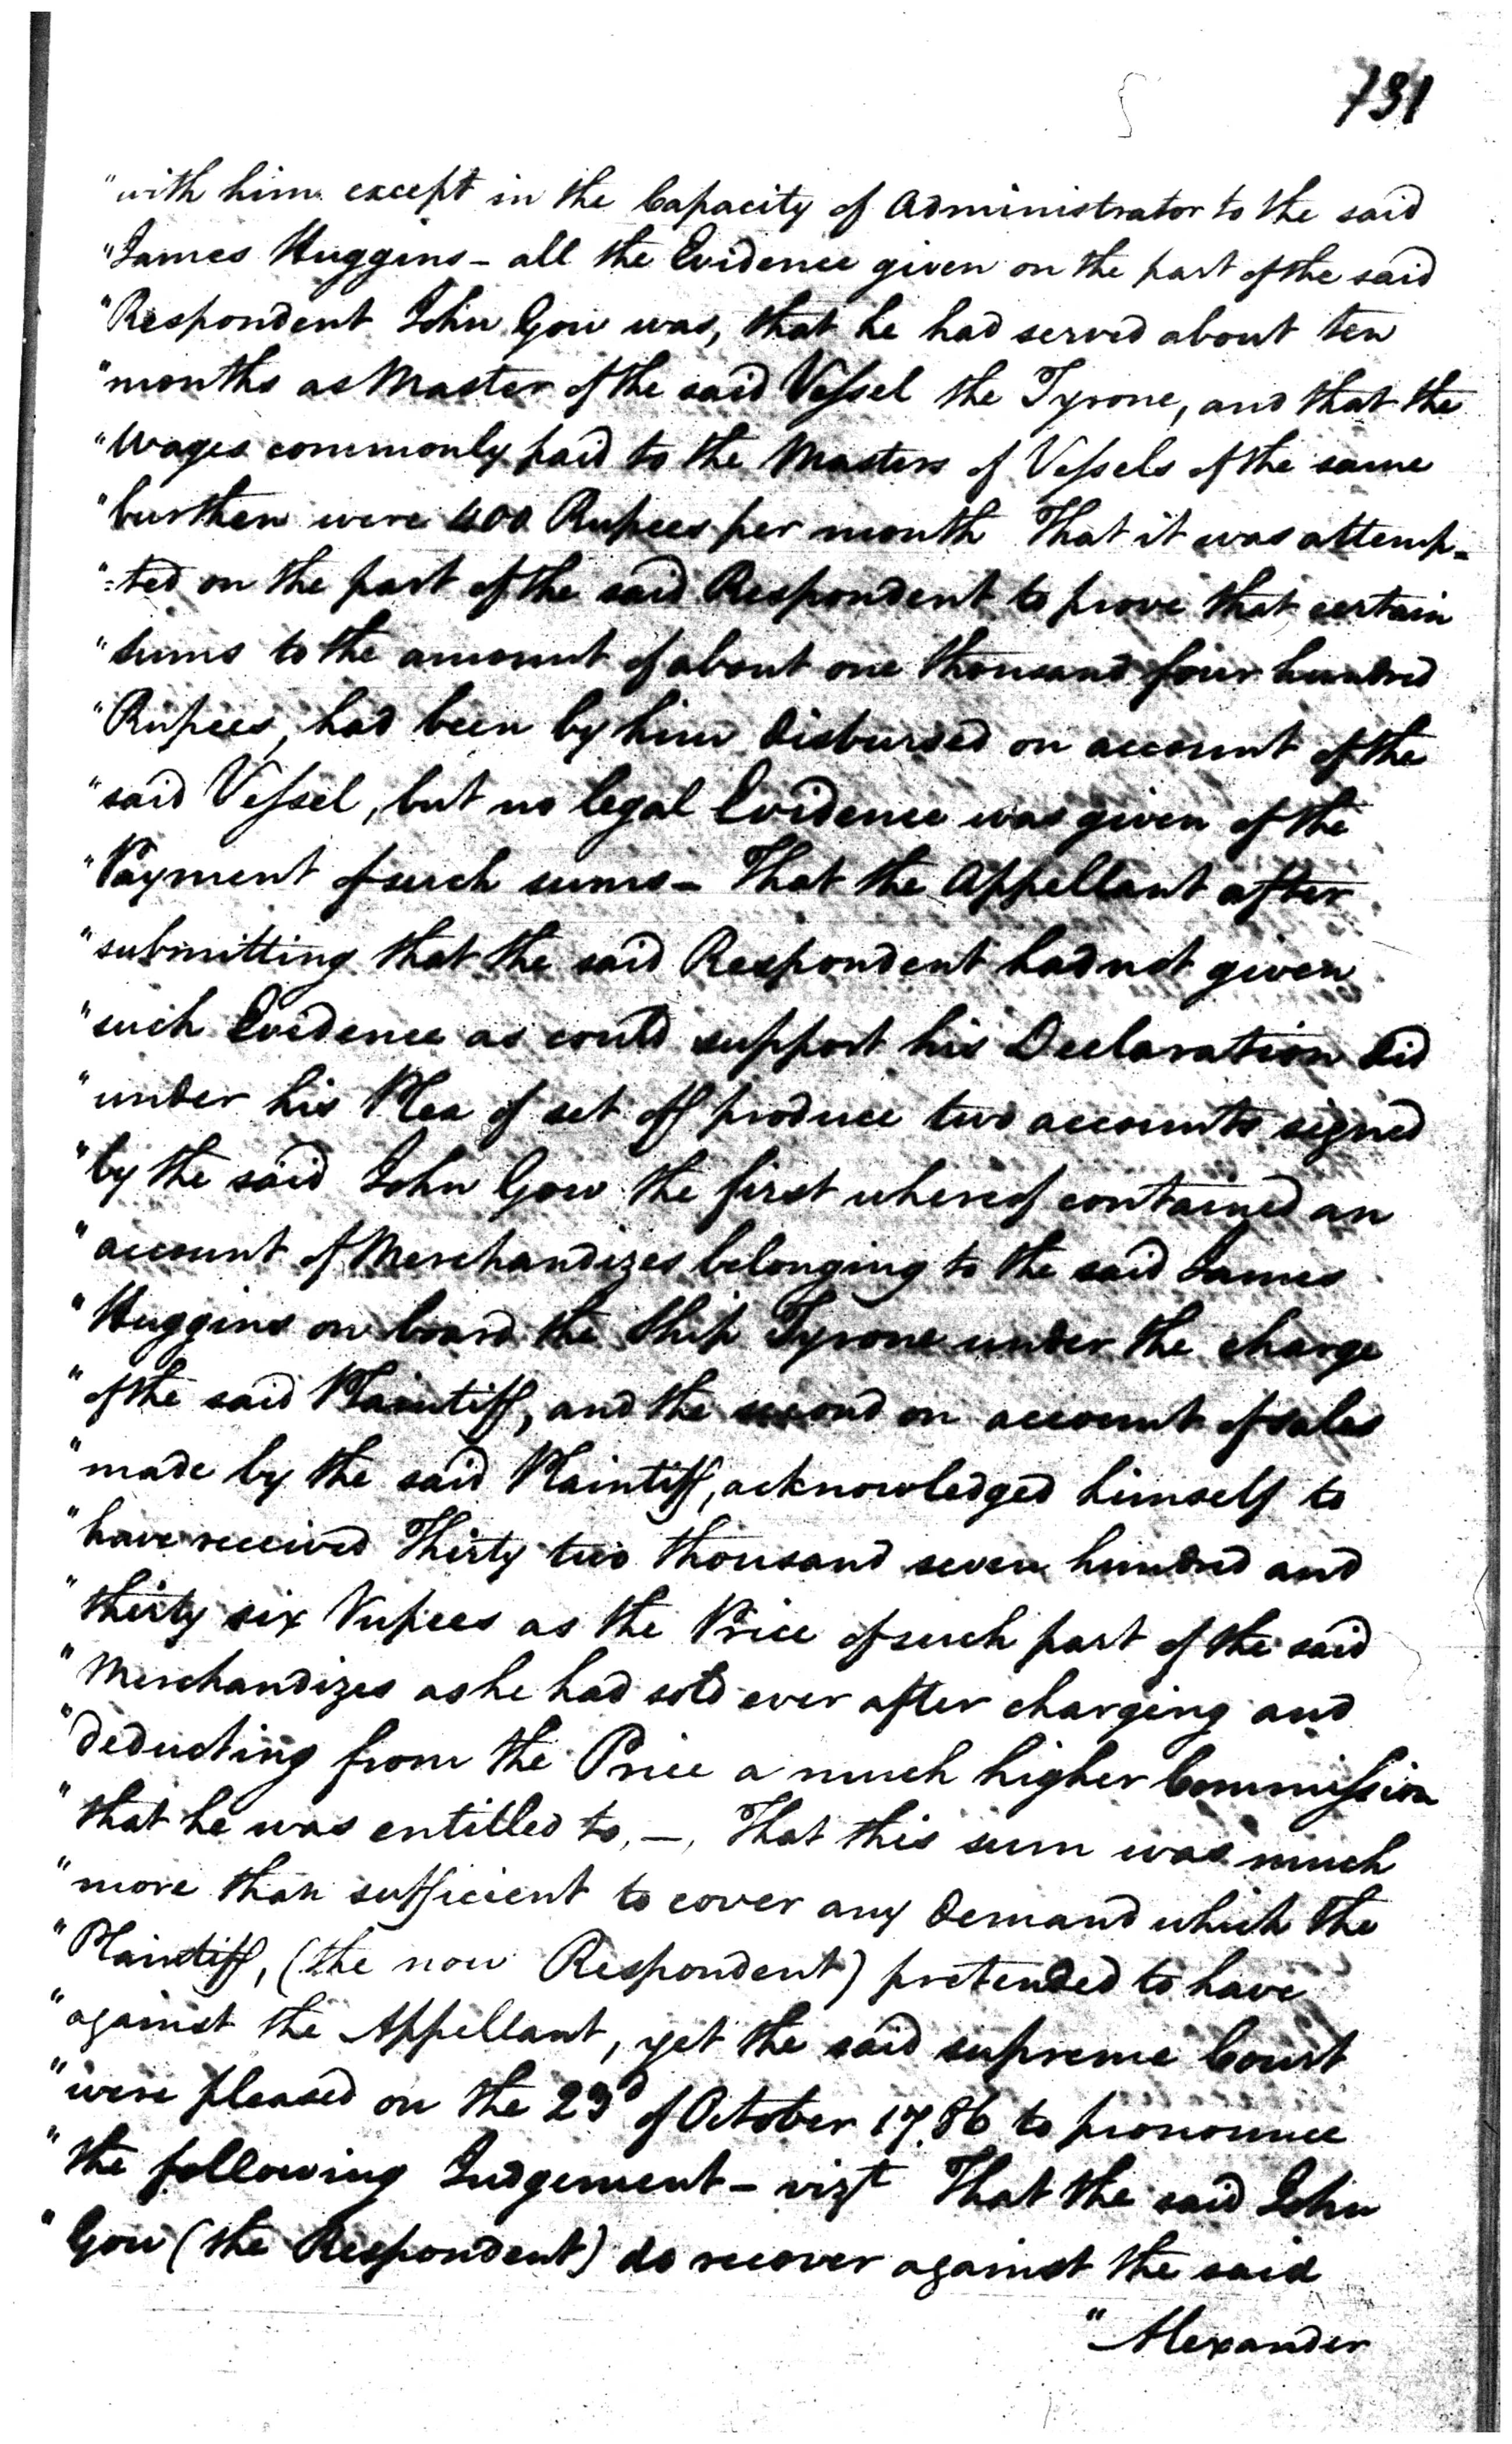 731
"with him except in the Capacity of Administrator to the said
"James Huggins - all the Evidence given on the part of the said
"Respondent John Gow was, that he had served about ten
"months as Master of the said Vessel the Tyrone, and that the
"Wages commonly paid to the Masters of Vessels of the same
"burthen were 400 Rupees per month That it was attemp-
":ted on the part of the said Respondent to prove that certain
"sums to the amount of about one thousand four hundred
"Rupees, had been by him disbursed on account of the
"said Vessel, but no legal Evidence was given of the
"Payment of such sums - That the Appellant after
"submitting that the said Respondent had not given
"such Evidence as could support his Declaration did
"under his Plea of set off produce two accounts signed
"by the said John Gow the first whereof contained an
"account of Merchandizes belonging to the said James
"Huggins on board the Ship Tyrone under the charge
"of the said Plaintiff, and the second on account of sales
"made by the said Plaintiff, acknowledged himself to
"have received Thirty two thousand seven hundred and
"thirty six Rupees as the Price of such part of the said
"Merchandizes as he had sold ever after charging and
"deducting from the Price a much higher Commission
"that he was entitled to, -, That this sum was much
"more than sufficient to cover any demand which the
"Plaintiff, (the now Respondent) pretended to have
"against the Appellant, yet the said supreme Court
"were pleased on the 23d of October 1786 to pronounce
"the following Judgement - vizt That the said John
"Gow (the Respondent) do recover against the said
"Alexander